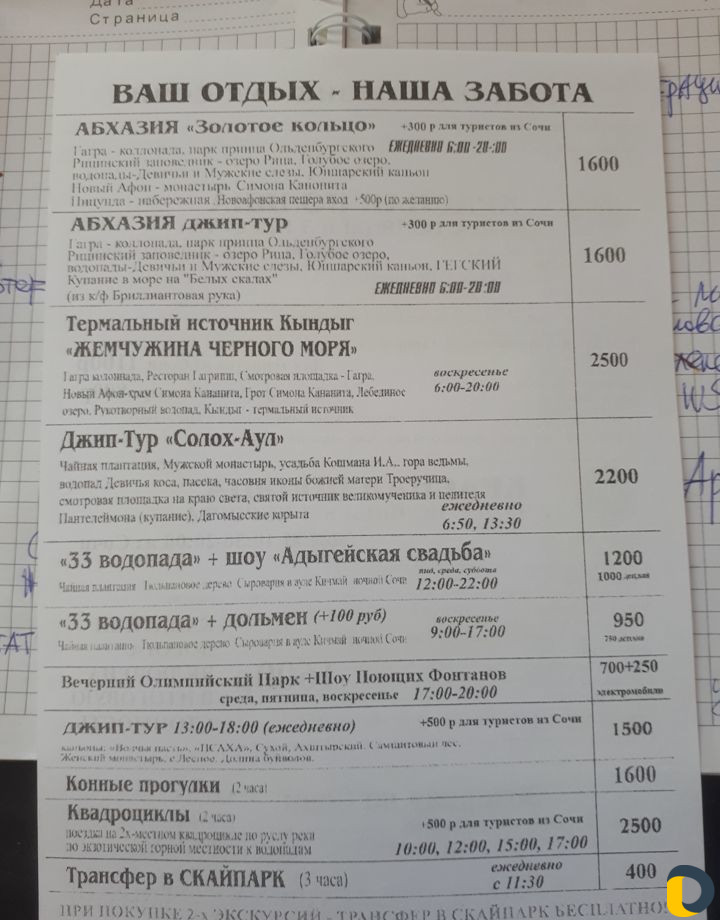 Дата
Страница
ВАШ ОТДЫХ - НАША ЗАБОТА
АБХАЗИЯ «Золотое кольцо» +300 р для туристов из Сочи
Гагра - коллонада, парк принца Ольденбургского ЕЖЕДНЕВНО 6:00 -20-:00
Рицинский заповедник - озеро Рица, Голубое озеро,
водопады-Девичьи и Мужские слезы, Юпшарский каньон
Новый Афон - монастырь Симона Канонита
Пицунда - набережная Новоафонская пещера вход +500р (по желанию)
1600
АБХАЗИЯ джип-тур +300 р для туристов из Сочи
Гагра - коллонада, парк принца Ольденбургского
Рицинский заповедник - озеро Рица, Голубое озеро,
водопады-Девичьи и Мужские слезы, Юпшарский каньон, ГЕГСКИЙ
Купание в море на "Белых скалах"
(из к/ф Бриллиантовая рука) ЕЖЕДНЕВНО 6:00-20:00
1600
Термальный источник Кындыг
«ЖЕМЧУЖИНА ЧЕРНОГО МОРЯ»
Гагра колоннада, Ресторан Гагрипш, Смотровая площадка - Гагра, воскресенье
Новый Афон-храм Симона Кананита, Грот Симона Кананита, Лебединое 6:00-20:00
озеро, Рукотворный водопад, Кындыг - термальный источник
2500
Джип-Тур «Солох-Аул»
Чайная плантация, Мужской монастырь, усадьба Кошмана И.А.. гора ведьмы,
водопад Девичья коса, пасека, часовня иконы божией матери Троеручица,
смотровая площадка на краю света, святой источник великомученика и целителя
Пантелеймона (купание), Дагомысские корыта ежедневно
6:50, 13:30
2200
«33 водопада» + шоу «Адыгейская свадьба» 1200
пнд, среда, суббота
Чайная плантация Тюльпановое дерево Сыроварня в ауле Кичмай ночной Сочи 12:00-22:00 1000 детская
«33 водопада» + дольмен (+100 руб) воскресенье 950
Чайная плантация Тюльпановое дерево Сыроварня в ауле Кичмай ночной Сочи 9:00-17:00 750 детская
Вечерний Олимпийский Парк +Шоу Поющих Фонтанов 700+250
среда, пятница, воскресенье 17:00-20:00 электромобили
ДЖИП-ТУР 13:00-18:00 (ежедневно) +500 р для туристов из Сочи 1500
каньоны: «Волчья пасть», «ПСАХА», Сухой, Ахштырский. Самшитовый лес.
Женский монастырь, с Лесное. Долина буйволов.
Конные прогулки (2 часа) 1600
Квадроциклы (2 часа) +500 р для туристов из Сочи 2500
поездка на 2х-местном квадроцикле по руслу реки
по экзотической горной местности к водопадам 10:00, 12:00, 15:00, 17:00
Трансфер в СКАЙПАРК (3 часа) ежедневно 400
с 11:30
ПРИ ПОКУПКЕ 2-х ЭКСКУРСИЙ - ТРАНСФЕР В СКАЙПАРК БЕСПЛАТНО!